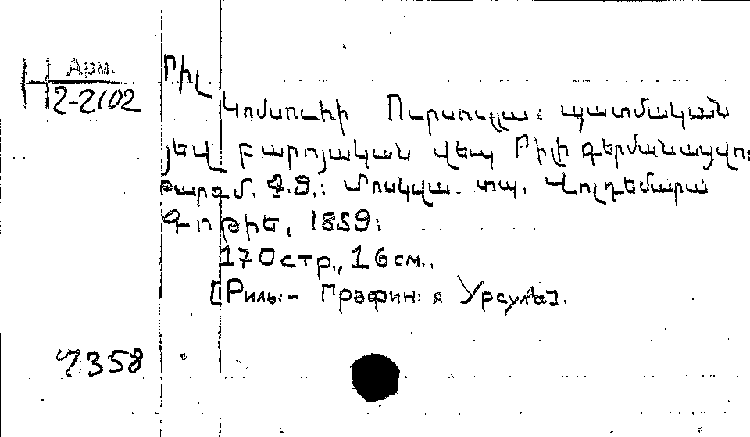 Арм.
2-2102
Րիլ
Կոմսուհի Ուրսուլա: պատմական
յեվ բարոյական վեպ Րիլի գերմանացվո
թարգմ. Գ.Յ.: Մոսկվա. տպ. Վոլդեմարա
Գոթիե, 1889:
170стр., 16см..
[Риль:- Графин: я Урсуле].
7358